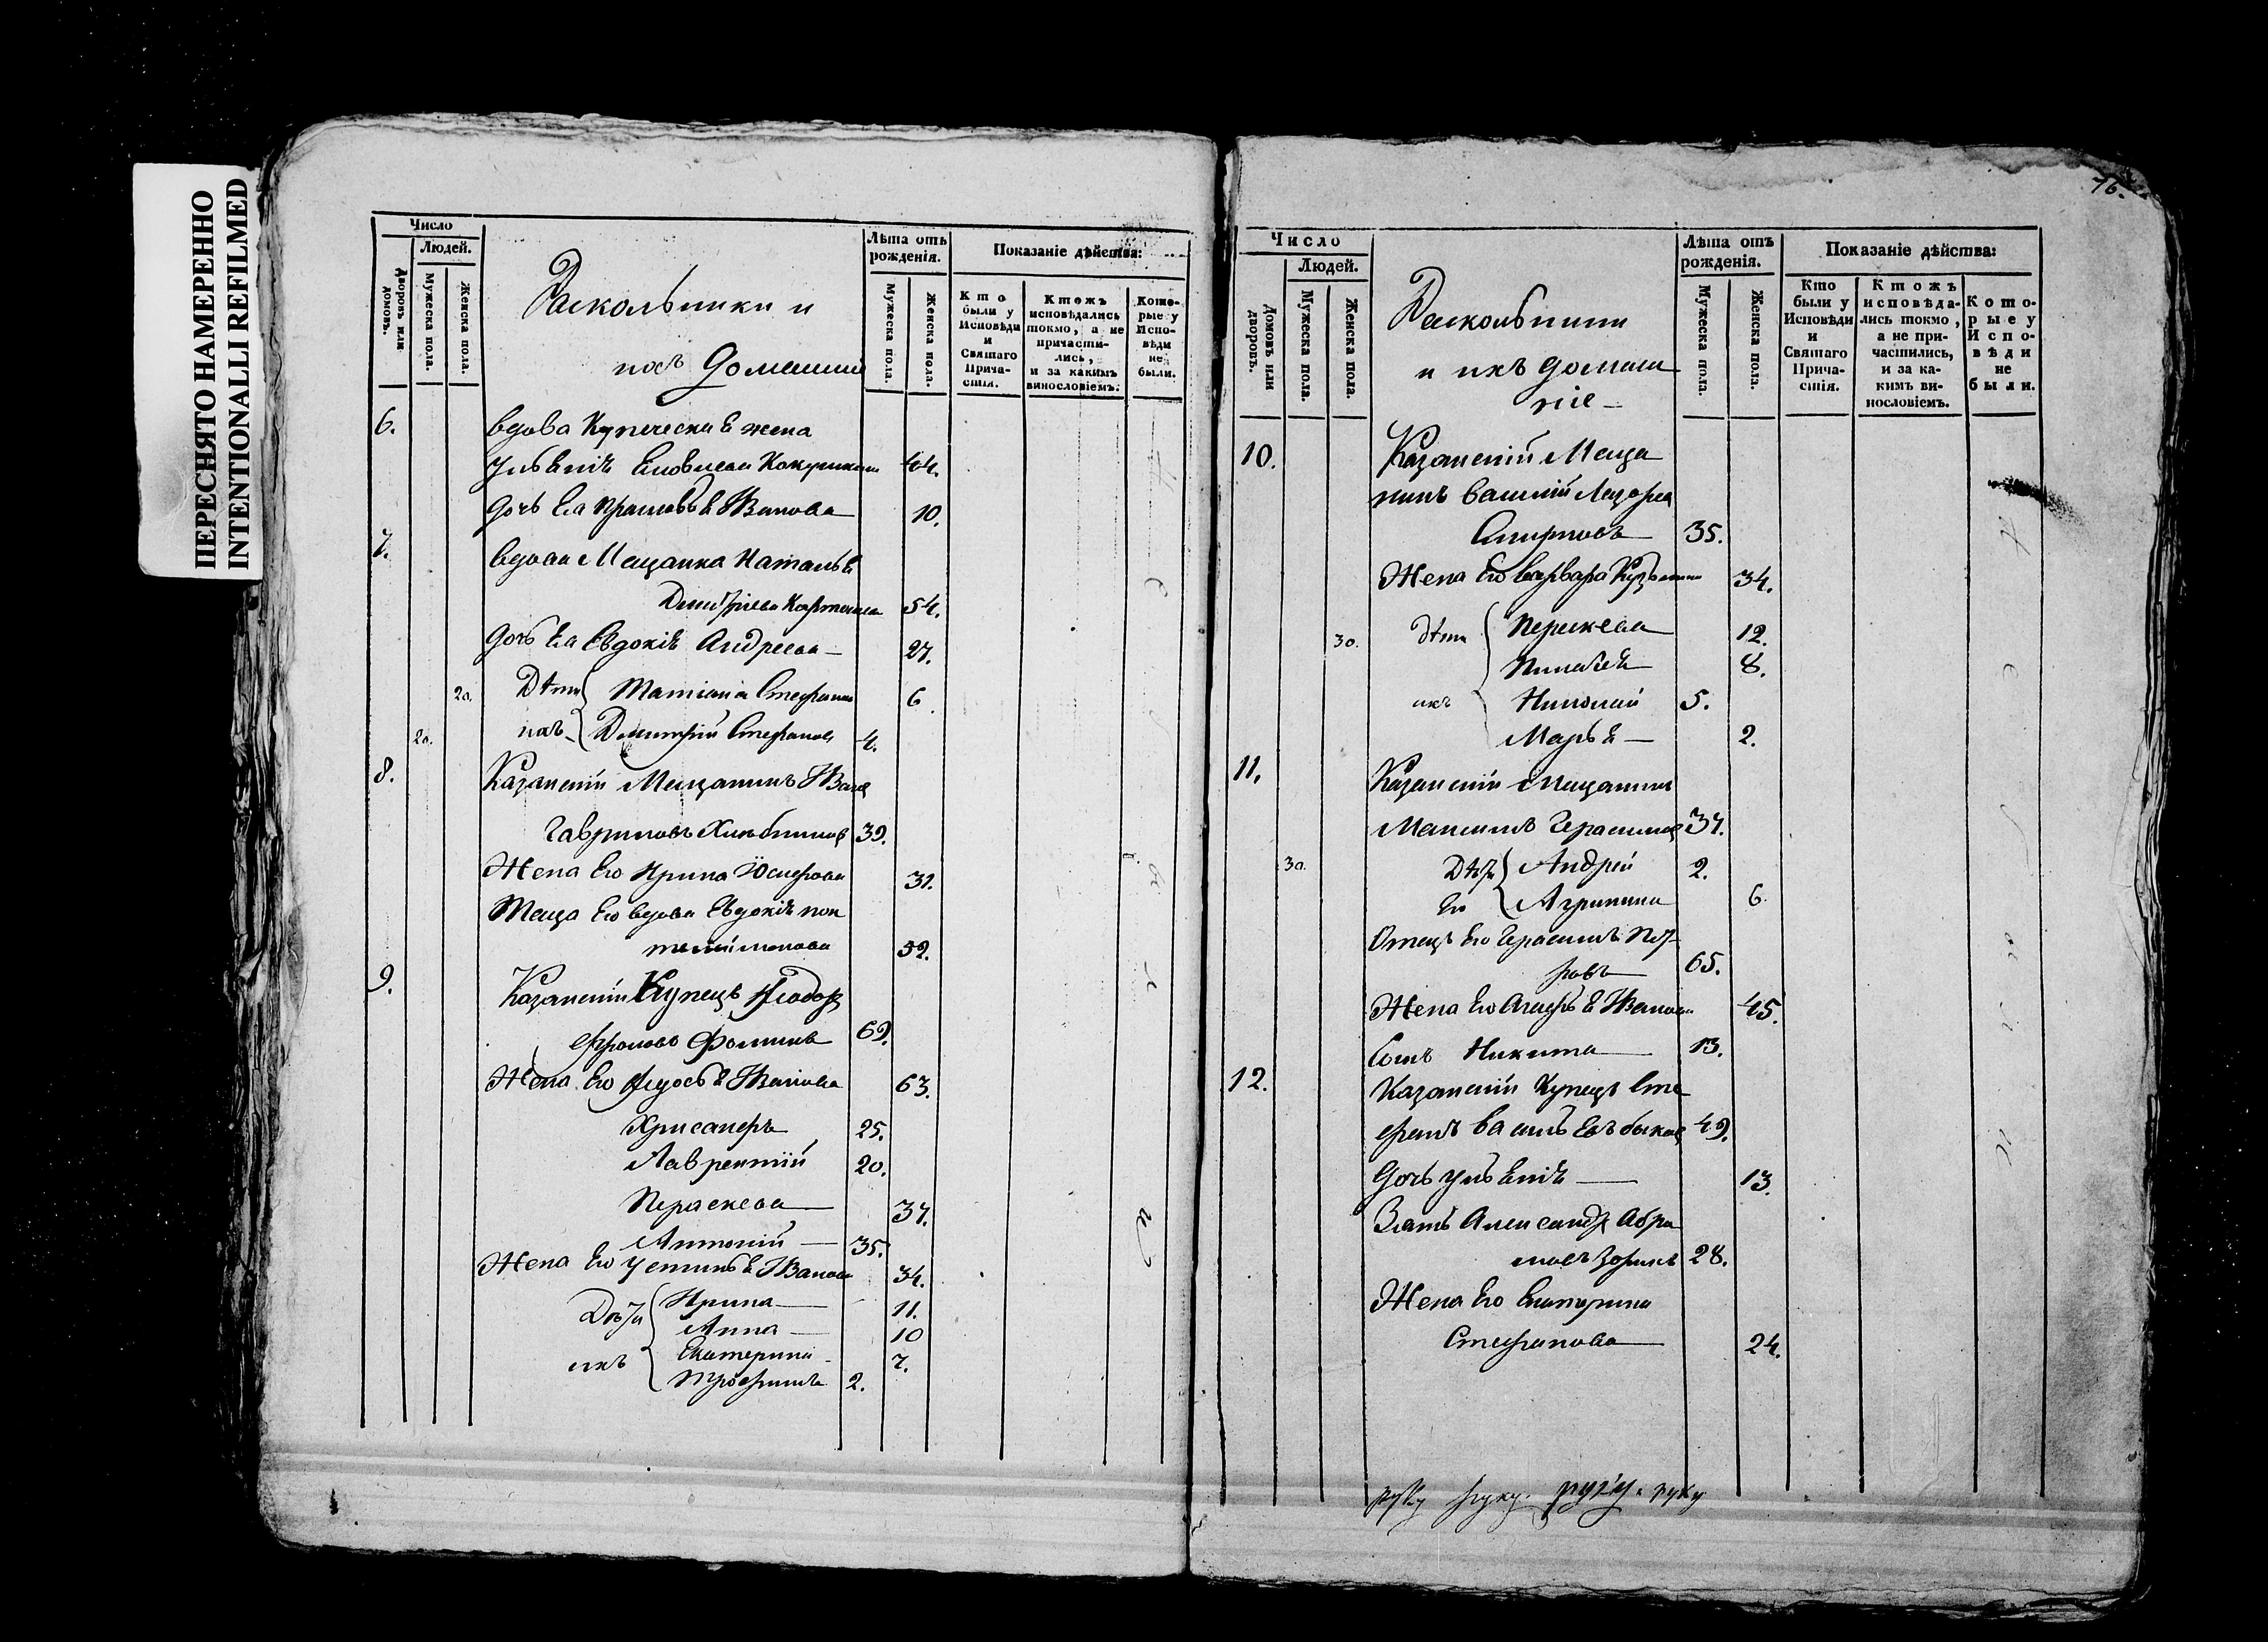 ПЕРЕСНЯТО НАМЕРЕННО
INTENTIONALLI REFILMED
Число
Людей.
Дворовъ или домовъ.
Мужеска пола.
Женска пола.
Раскольники и
ихъ домашнии
Лѣта отъ рожденія.
Мужеска пола.
Женска пола.
Показаніе дѣйства:
Кто были у Исповѣди и Святаго Прича-стія.
Ктожъ исповѣдались токмо, а не причасти-лись, и за какимъ винословіемъ.
Кото-рые у Испо-вѣди не были.
6.
вдова Купеческая жена
Ульянія 44.
дочь Ея Прасковья Иванова 10.
7.
вдова Мещанка Наталья
Дмитріева 54.
дочь Ея Евдокія Андреева 27.
20. Дѣти Татіана Стефанова 6
20. ихъ Димитрій Стефановъ 4.
8.
Казанскій Мещанинъ Иванъ
Гавриловъ Хлебниковъ 39.
Жена Его Ирина Іосифова 31.
Теща Его вдова Евдокія пан
телиймонова 52.
9.
Казанскій Купецъ Ѳеодоръ
Фроловъ Фоминъ 69.
Жена Его Ѳедосья Иванова 63.
Хрисанфъ 25.
Лаврентій 20.
Параскева 37.
Антоній 35.
Жена Его Устинья Иванова 34.
Дѣти Ирина 11.
Анна 10
ихъ Екатерина 7.
Трофимъ 2.
76.
Число
Людей.
Домовъ или дворовъ.
Мужеска пола.
Женска пола.
Раскольники
и ихъ домаш
ніе
Лѣта отъ рожденія.
Мужеска пола.
Женска пола.
Показаніе дѣйства:
Кто были у Исповѣди и Святаго Прича-стія.
Ктожъ исповѣда-лись токмо, а не при-частились, и за ка-кимъ ви-нословіемъ.
Кото-рые у Испо-вѣди не были.
10.
Казанскій Меща
нинъ Василій Лазорев
Смирновъ 35.
Жена Его Варвара Кузьмина 34.
30. дѣти Параскева 12.
Пелагея 8.
ихъ Николай 5.
Марья 2.
11.
Казанскій Мещанинъ
Максимъ Герасимов 37.
30. Дѣти Андрей 2.
Его Агрипина 6.
Отецъ Его Герасимъ Пет
ровъ 65.
Жена Его Агафья Иванова 45.
Сынъ Никита 13.
12.
Казанскій Купецъ Сте
фанъ Васильевъ быков 49.
Дочь Ульянія 13.
Зять Александръ Абра
мовъ Зоринъ 28.
Жена Его Екатерина
Стефанова 24.
руку руку. руку. руку